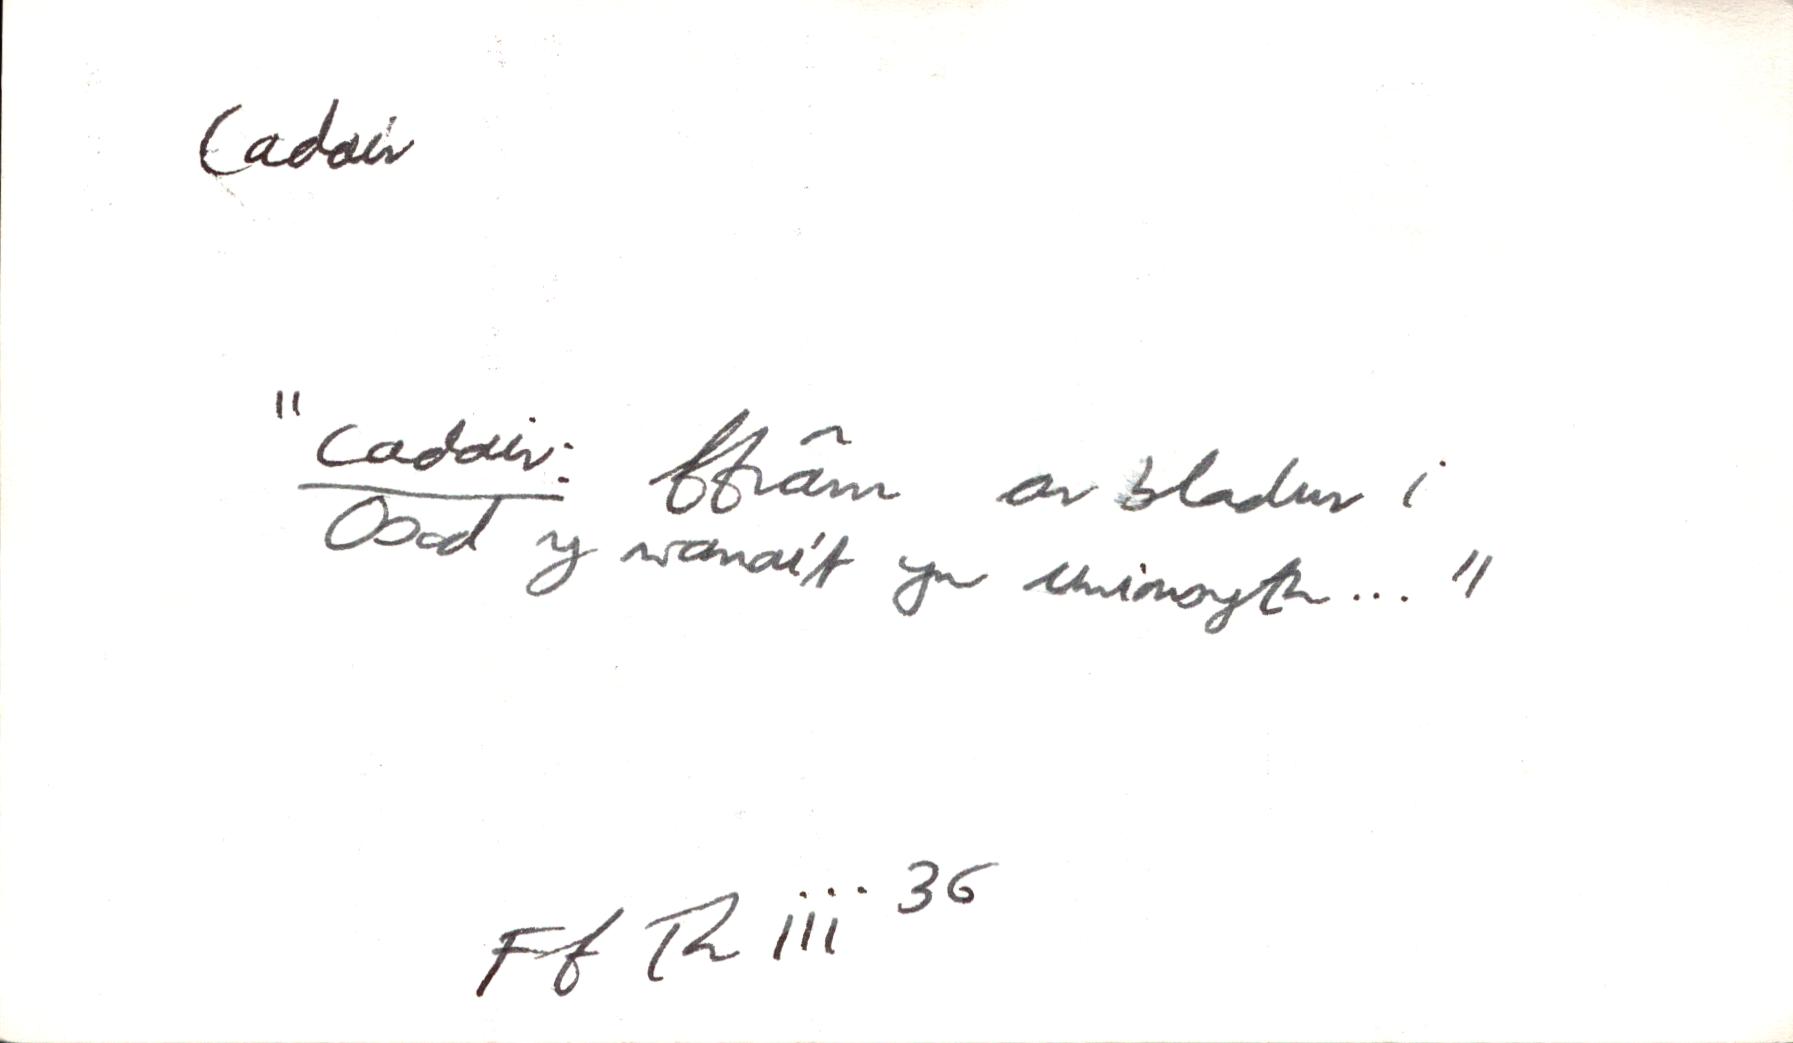 Cadair
"cadair: ffrâm ar bladur i
osod y wanaf yn unionsyth..."
Ff Th iii 36